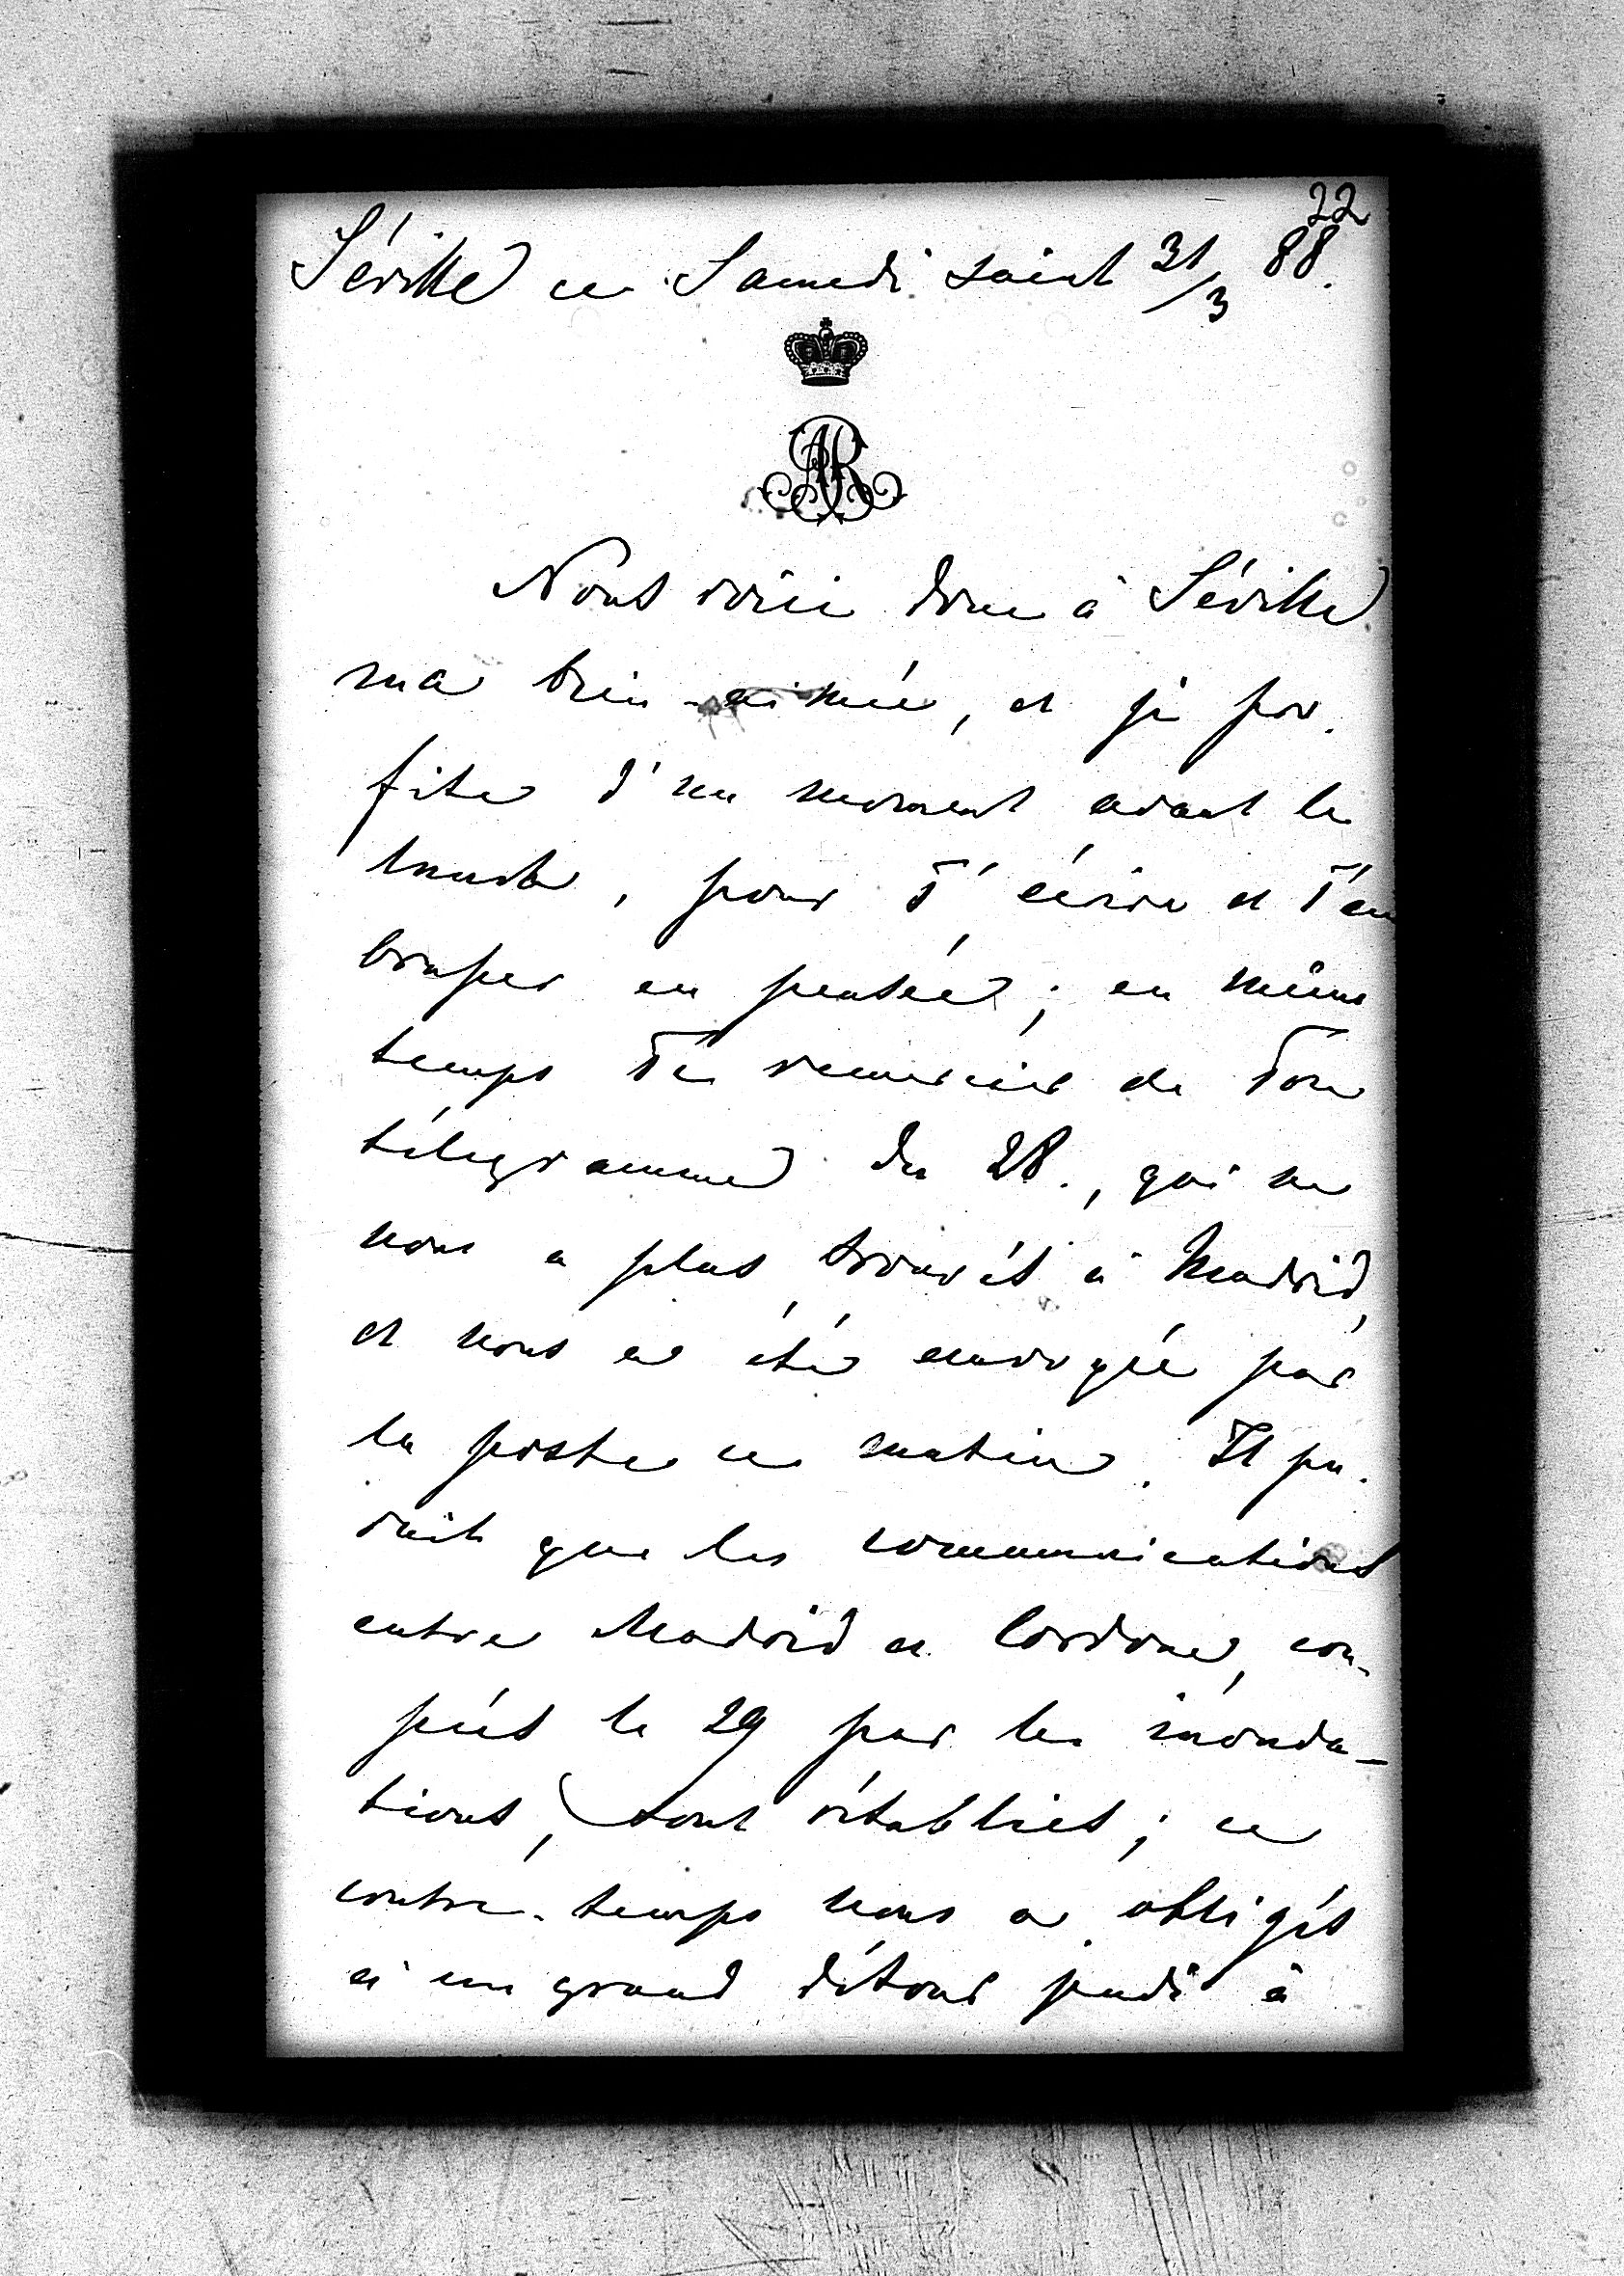 22
Séville ce Samedi saint 31/3 88.
AR
Nous voici donc à Séville
ma bien-aimée, et je pro-
fite d'un moment avant le
lunch, pour T'écrire et T'em
brasser en pensée; en même
temps Te remercier de Ton
télégramme du 28., qui ne
nous a plus trouvés à Madrid,
et nous a été envoyée par
la poste ce matin. Il pa-
rait que les communications
entre Madrid et Cordoue, cou-
pées le 29 par les inonda-
tions, sont rétablies; ce
contre-temps nous a obligés
à un grand détour jeudi à